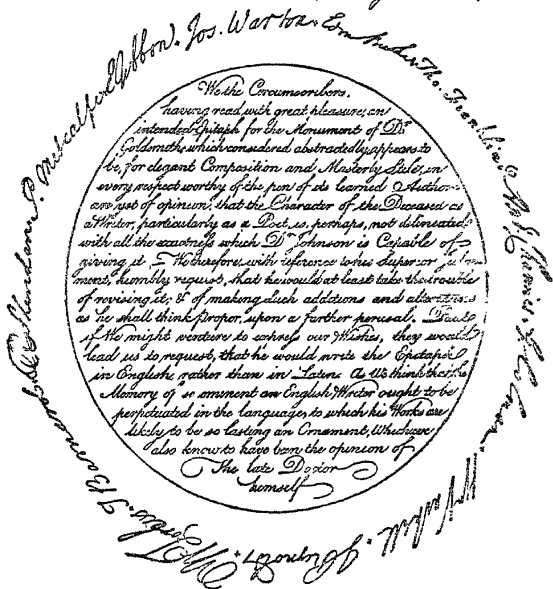 We the Circumscribers,
having read with great pleasure, an
intended Epitaph for the Monument of Dr
Goldsmith, which considered abstractedly, appears to
be, for elegant Composition and Masterly Stile, in
every respect worthy of the pen of its learned Author,
are yet of opinion, that the Character of the Deceased as
a Writer, particularly as a Poet, is, perhaps, not delineated
with all the exactness which Dr Johnson is Capable of
giving it. We therefore, with deference to his Superior Judge-
ment, humbly request, that he would at least take the trouble
of revising it, & of making such additions and alterations
as he shall think proper, upon a further perusal. But
if We might venture to express our Wishes, they would
lead us to request, that he would write the Epitaph
in English, rather than in Latin. As We think that the
Memory of so eminent an English Writer ought to be
perpetuated in the language, to which his Works are
likely to be so lasting an Ornament, Which we
also know to have been the opinion of
The late Doctor
himself
Edm Burke. Tho. Franklin.
J. Reynolds.
W Forbes. T Barnard.
P. Metcalfe. E Gibbon. Jos. Warton.